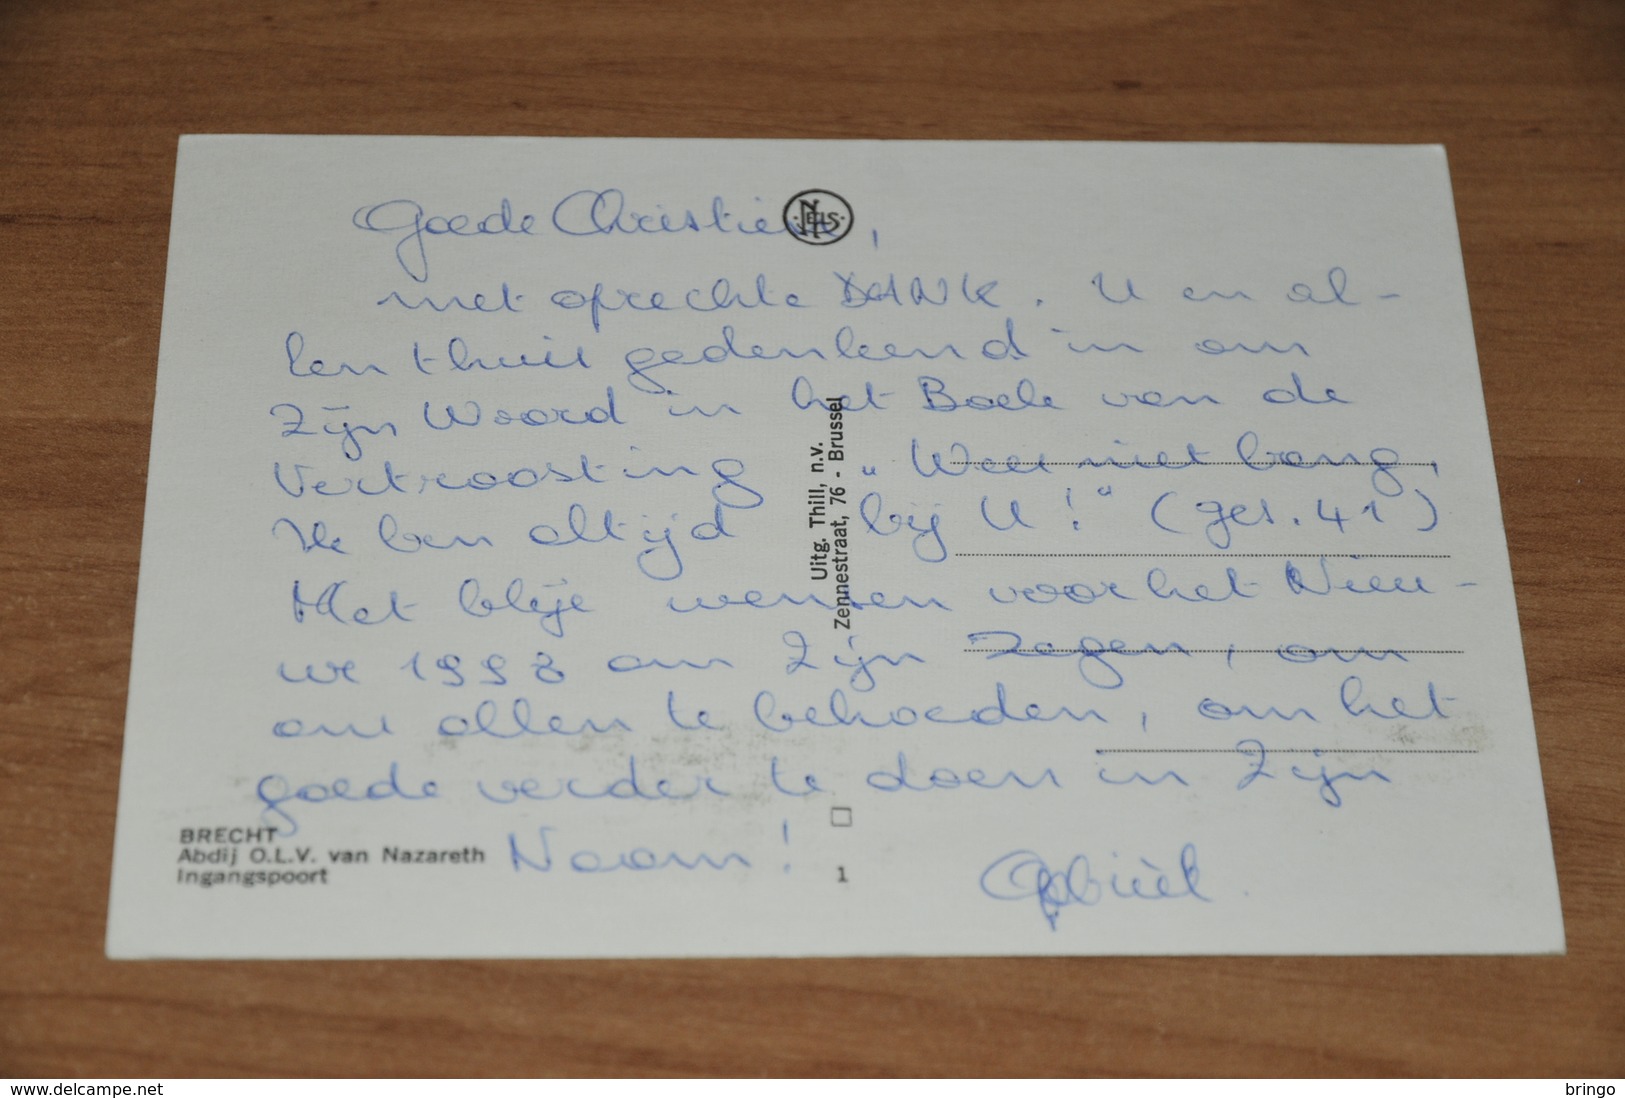 Goede Christiene,
met oprechte DANK. U en al-
len thuis gedenkend in om
Zijn Woord in het Boek van de
Vertroosting "Wees niet bang,
Ik ben altijd bij U!" (Jes. 41)
Met blije wensen voor het Nieu-
we 1998 om Zijn zegen, om
ons allen te behoeden, om het
goede verder te doen in Zijn
Naam!
Gabriël
NELS
Uitg. Thill, n.v.
Zennestraat, 76 - Brussel
BRECHT
Abdij O.L.V. van Nazareth
Ingangspoort
1
www.delcampe.net
bringo